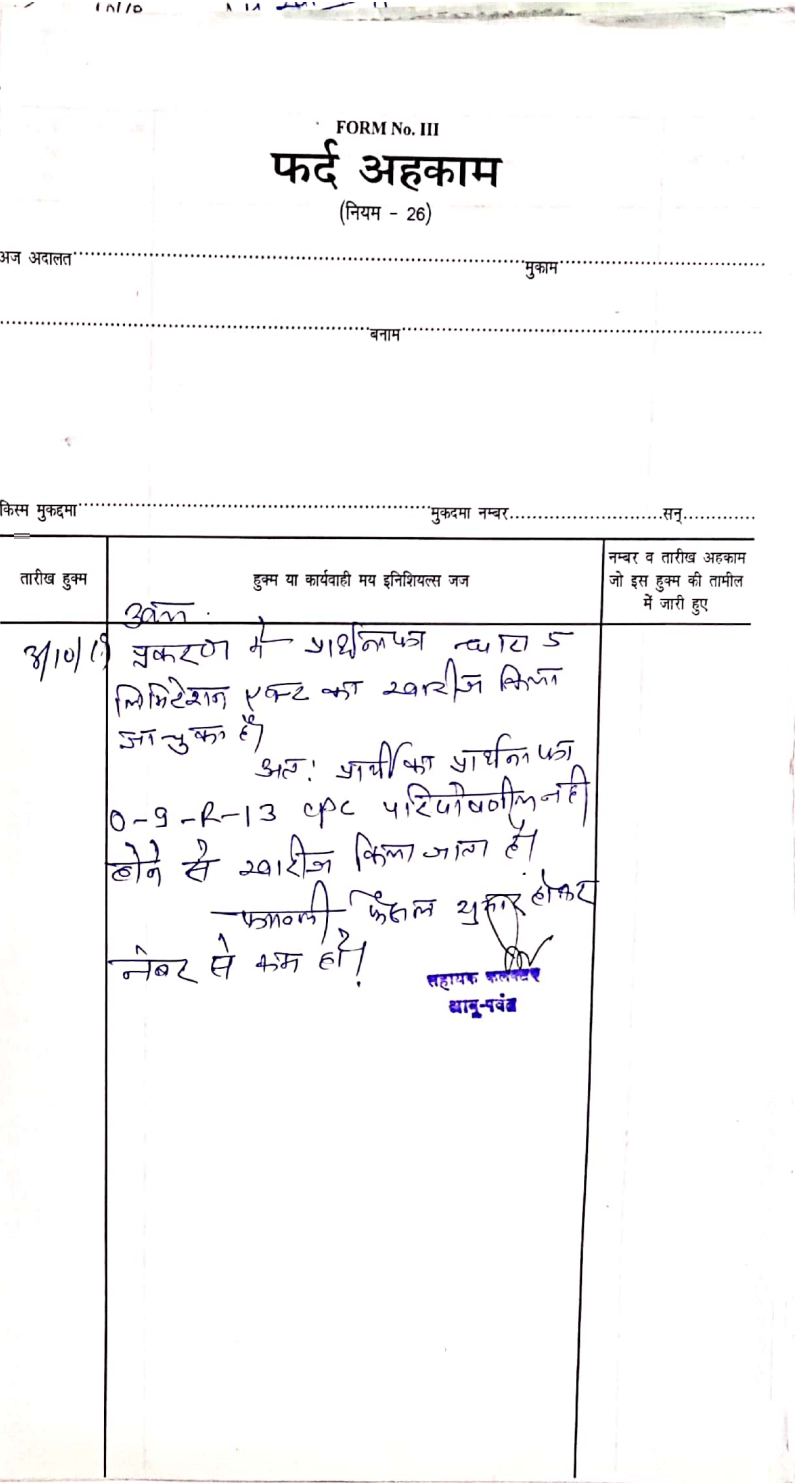 FORM No. III
फर्द अहकाम
(नियम - 26)
अज अदालत मुकाम
बनाम
किस्म मुकद्दमा मुकदमा नम्बर सन्
तारीख हुक्म
हुक्म या कार्यवाही मय इनिशियल्स जज
नम्बर व तारीख अहकाम
जो इस हुक्म की तामील
में जारी हुए
प्रकरण में प्रार्थनापत्र धारा 5
लिमिटेशन एक्ट का खारीज किया
जा चुका है।
अतः प्रार्थी का प्रार्थना पत्र
0-9-R-13 CPC परिपोषणीय नही
होने से खारीज किया जाता है।
पत्रावली फैसल शुमार होकर
नंबर से कम हो।
सहायक कलक्टर
आबू-पर्वत